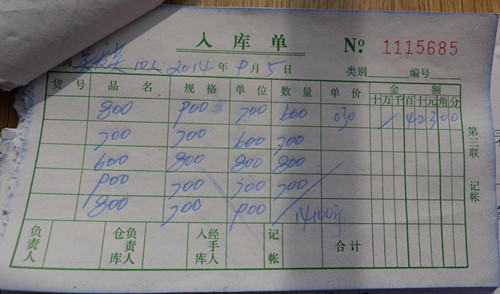 入库单 № 1115685
四人 2014年9月5日 类别 编号
货号 品名 规格 单位 数量 单价 金额
十万千百十元角分
800 900 700 600 030 142300
700 700 600 700
600 800 800 800
900 700 700 700
800 700 900 14100
负责人 仓库负责人 入库经手人 记帐 合计
第三联 记帐